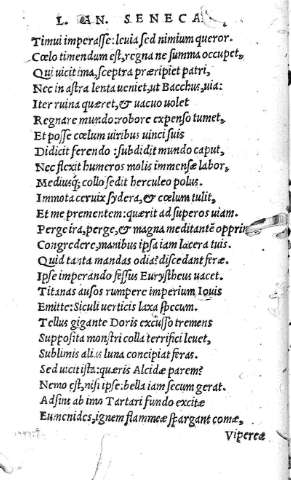 L. AN. SENECA
Timui imperasse: leuia sed nimium queror.
Cœlo timendum est, regna ne summa occupet,
Qui uicit ima, sceptra præripiet patri,
Nec in astra lenta ueniet, ut Bacchus, uia:
Iter ruina quæret, & uacuo uolet
Regnare mundo: robore expenso tumet,
Et posse cœlum uiribus uinci suis
Didicit ferendo: subdidit mundo caput,
Nec flexit humeros molis immensæ labor,
Mediusq; collo sedit herculeo polus.
Immota ceruix sydera, & cœlum tulit,
Et me prementem: quærit ad superos uiam.
Perge ira, perge, & magna meditantē opprim
Congredere, manibus ipsa iam lacera tuis.
Quid tanta mandas odia? discedant feræ.
Ipse imperando fessus Eurystheus uacet.
Titanas ausos rumpere imperium Iouis
Emitte: Siculi uerticis laxa specum.
Tellus gigante Doris excusso tremens
Supposita monstri colla terrifici leuet,
Sublimis alias luna concipiat feras.
Sed uicit ista: quæris Alcidæ parem?
Nemo est, nisi ipse: bella iam secum gerat.
Adsint ab imo Tartari fundo excitæ
Eumenides, ignem flammeæ spargant comæ,
Vipereæ